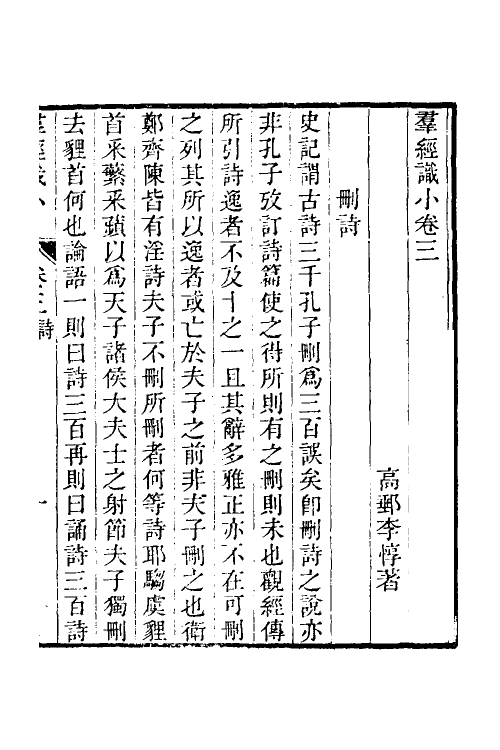 羣經識小卷三
高郵李惇著
刪詩
史記謂古詩三千孔子刪爲三百誤矣卽刪詩之說亦
非孔子攷訂詩篇使之得所則有之刪則未也觀經傳
所引詩逸者不及十之一且其辭多雅正亦不在可刪
之列其所以逸者或亡於夫子之前非夫子刪之也衛
鄭齊陳皆有淫詩夫子不刪所刪者何等詩耶騶虞貍
首采蘩采蘋以爲天子諸侯大夫士之射節夫子獨刪
去貍首何也論語一則曰詩三百再則曰誦詩三百詩
羣經識小
卷三詩
一